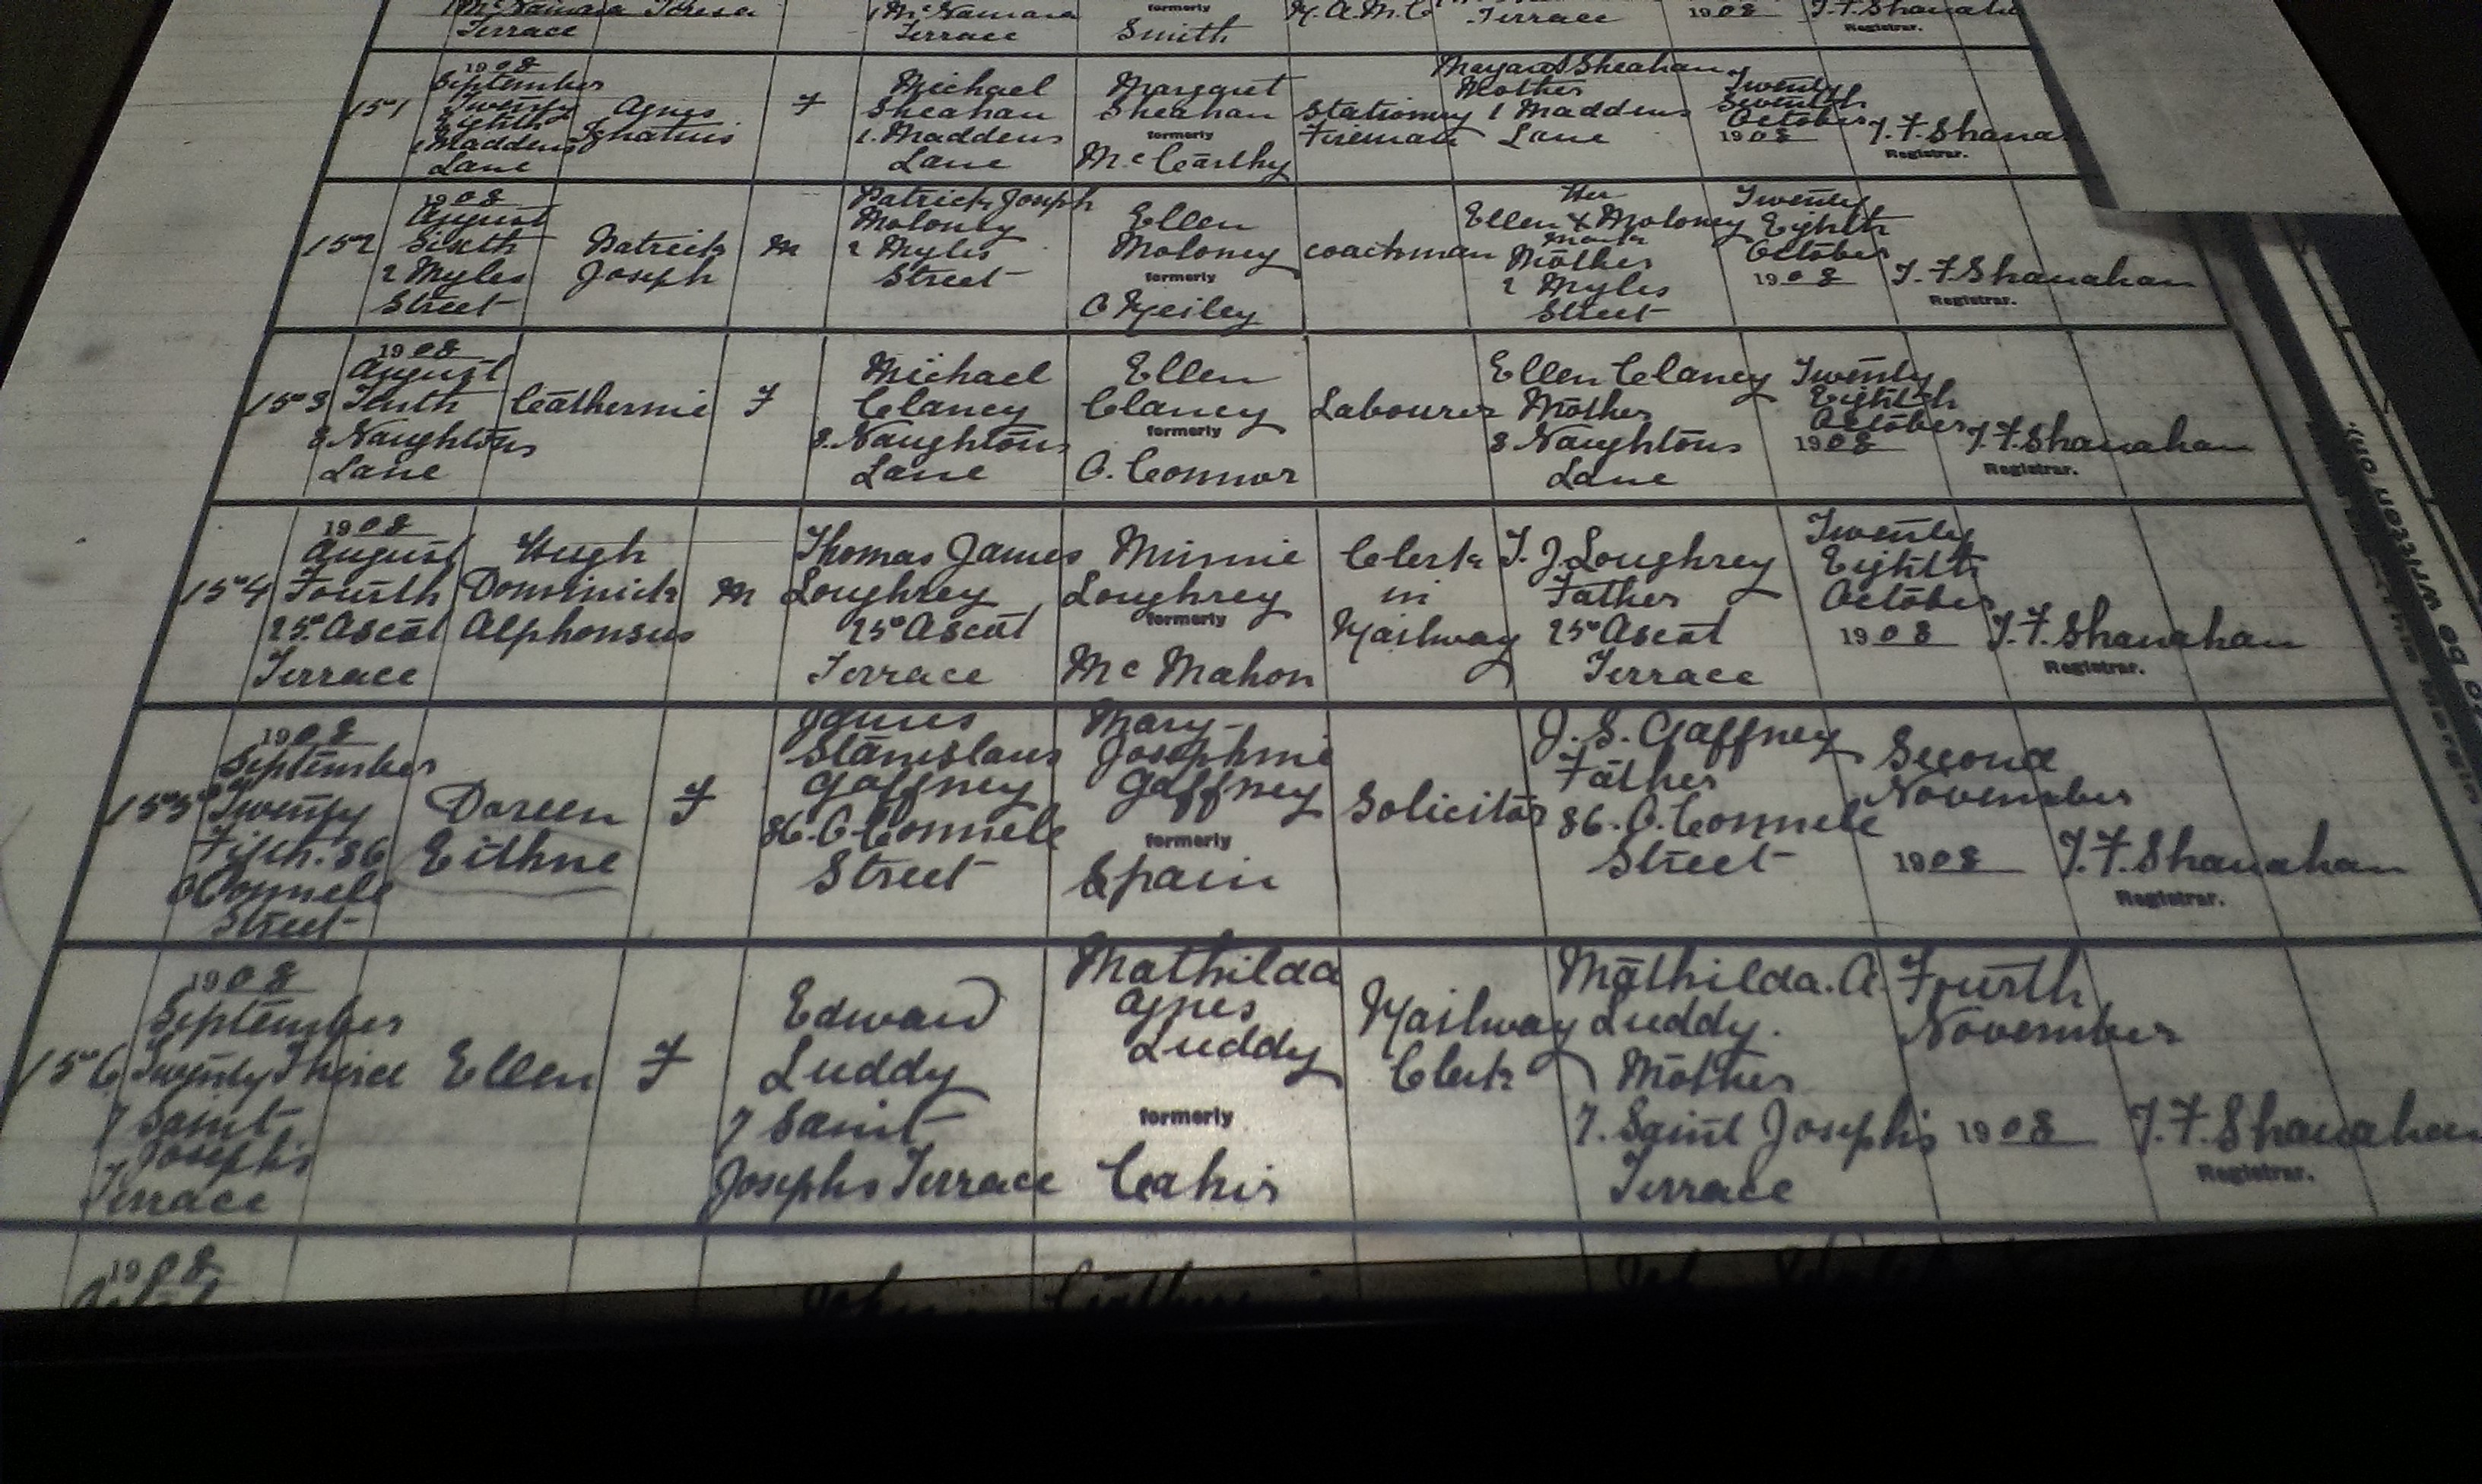 McNamara Teresa
Terrace
1 McNamara
Terrace
formerly
Smith
R.A.M.C
Terrace
1908
T.F. Shanahan
Registrar.
151
1908
September
Twenty
Eighth
1 Maddens
Lane
Agnes
Ignatius
F
Michael
Sheahan
1. Maddens
Lane
Margaret
Sheahan
formerly
McCarthy
Stationary
Fireman
Margaret Sheahan
Mother
1 Maddens
Lane
Twenty
Seventh
October
1908
T.F. Shana
Registrar.
152
1908
August
Sixth
2 Myles
Street
Patrick
Joseph
M
Patrick Joseph
Moloney
2 Myles
Street
Ellen
Moloney
formerly
O'Keiley
Coachman
Her
Ellen X Moloney
Mark
Mother
2 Myles
Street
Twenty
Eighth
October
1908
T.F. Shanahan
Registrar.
153
1908
August
Tenth
8. Naughtons
Lane
Catherine
F
Michael
Clancy
8. Naughtons
Lane
Ellen
Clancy
formerly
O.Connor
Labourer
Ellen Clancy
Mother
8 Naughtons
Lane
Twenty
Eighth
October
1908
T.F. Shanahan
Registrar.
154
1908
August
Fourth
25 Ascot
Terrace
Hugh
Dominick
Alphonsus
M
Thomas James
Loughrey
25 Ascot
Terrace
Minnie
Loughrey
formerly
McMahon
Clerk
in
Railway
T.J. Loughrey
Father
25 Ascot
Terrace
Twenty
Eighth
October
1908
T.F. Shanahan
Registrar.
155
1908
September
Twenty
Fifth. 86
O'Connell
Street
Doreen
Eithne
F
Stanislaus
Gaffney
86. O.Connell
Street
Mary
Josephine
Gaffney
formerly
Spain
Solicitor
J.S. Gaffney
Father
86. O.Connell
Street
Second
November
1908
T.F. Shanahan
Registrar.
156
1908
September
Twenty Third
7 Saint
Josephs
Terrace
Ellen
F
Edward
Luddy
7 Saint
Josephs Terrace
Mathilda
Agnes
Luddy
formerly
Cahir
Railway
Clerk
Mathilda. A.
Luddy.
Mother
7. Saint Joseph's
Terrace
Fourth
November
1908
T.F. Shanahan
Registrar.
1908
John